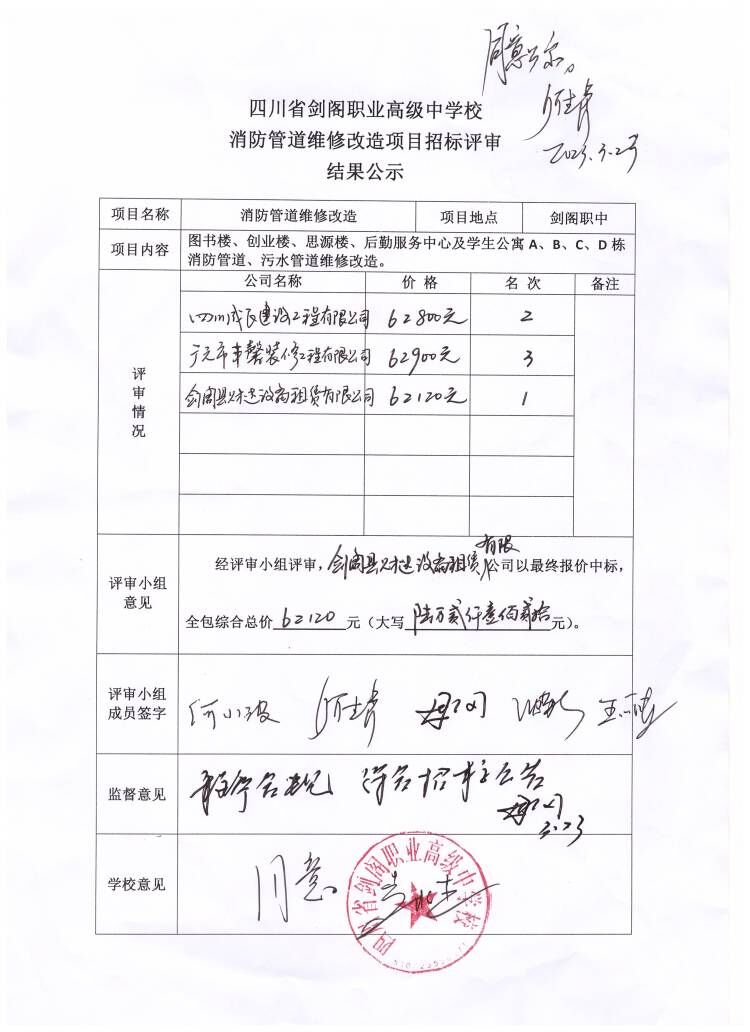 同意公示。
2023.3.23
四川省剑阁职业高级中学校
消防管道维修改造项目招标评审
结果公示
项目名称 消防管道维修改造 项目地点 剑阁职中
项目内容 图书楼、创业楼、思源楼、后勤服务中心及学生公寓 A、B、C、D 栋
消防管道、污水管道维修改造。
评审情况 公司名称 价 格 名 次 备注
四川成瓦建设工程有限公司 62800元 2
广元市丰馨装修工程有限公司 62900元 3
剑阁县 建设 租赁有限公司 62120元 1
评审小组
意见
经评审小组评审，剑阁县 建设 租赁有限公司以最终报价中标，
全包综合总价 62120 元（大写 陆万贰仟壹佰贰拾元）。
评审小组
成员签字
何小波
监督意见 程序合规 符合招标公告
3.23
学校意见 同意
四川省剑阁职业高级中学校